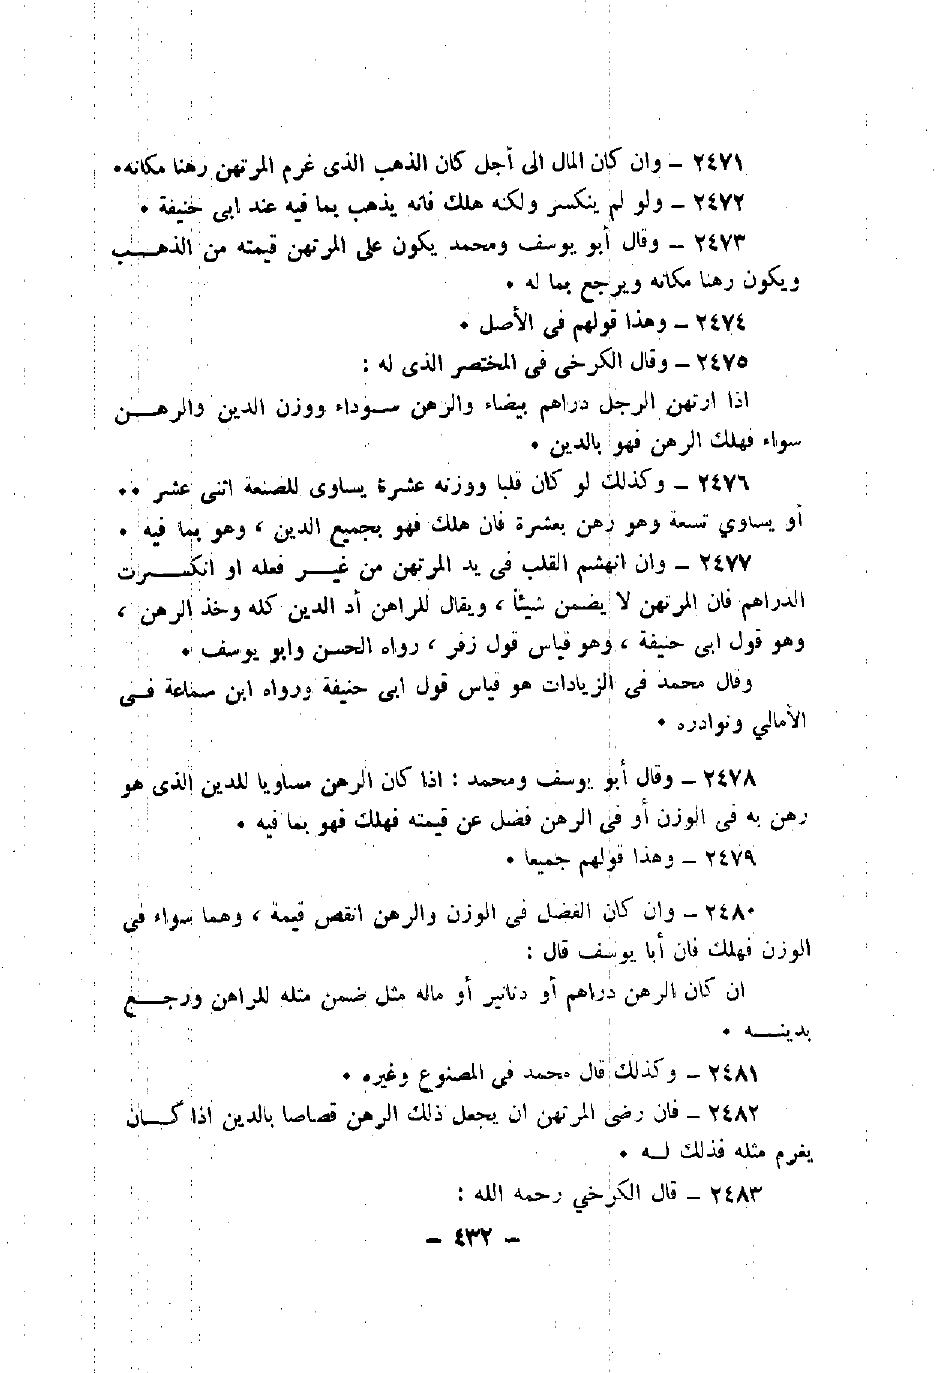 ٢٤٧١ – وان كان المال الى أجل كان الذهب الذى غرم المرتهن رهنا مكانه٠
٢٤٧٢ – ولو لم ينكسر ولكنه هلك فانه يذهب بما فيه عند ابى حنيفة ٠
٢٤٧٣ – وقال أبو يوسف ومحمد يكون على المرتهن قيمته من الذهــب
ويكون رهنا مكانه ويرجع بما له ٠
٢٤٧٤ – وهذا قولهم فى الأصل ٠
٢٤٧٥ – وقال الكرخى فى المختصر الذى له :
اذا ارتهن الرجل دراهم بيضاء والرهن ســوداء ووزن الدين والرهــن
سواء فهلك الرهن فهو بالدين ٠
٢٤٧٦ – وكذلك لو كان قلبا ووزنه عشرة يساوى للصنعة اثنى عشر ٠٠
أو يساوي تسعة وهو رهن بعشرة فان هلك فهو بجميع الدين ، وهو بما فيه ٠
٢٤٧٧ – وان انهشم القلب فى يد المرتهن من غيــر فعله او انكســرت
الدراهم فان المرتهن لا يضمن شيئا ، ويقال للراهن أد الدين كله وخذ الرهن ،
وهو قول ابى حنيفة ، وهو قياس قول زفر ، رواه الحسن وابو يوسف ٠
وقال محمد فى الزيادات هو قياس قول ابى حنيفة ورواه ابن سماعة فــى
الأمالي ونوادره ٠
٢٤٧٨ – وقال أبو يوسف ومحمد : اذا كان الرهن مساويا للدين الذى هو
رهن به فى الوزن أو فى الرهن فضل عن قيمته فهلك فهو بما فيه ٠
٢٤٧٩ – وهذا قولهم جميعا ٠
٢٤٨٠ – وان كان الفضل فى الوزن والرهن انقص قيمة ، وهما سواء فى
الوزن فهلك فان أبا يوسف قال :
ان كان الرهن دراهم أو دنانير أو ماله مثل ضمن مثله للراهن ورجــع
بدينــــه ٠
٢٤٨١ – وكذلك قال محمد فى المصنوع وغيره ٠
٢٤٨٢ – فان رضى المرتهن ان يجعل ذلك الرهن قصاصا بالدين اذا كــان
يغرم مثله فذلك لــه ٠
٢٤٨٣ – قال الكرخي رحمه الله :
– ٤٣٢ –